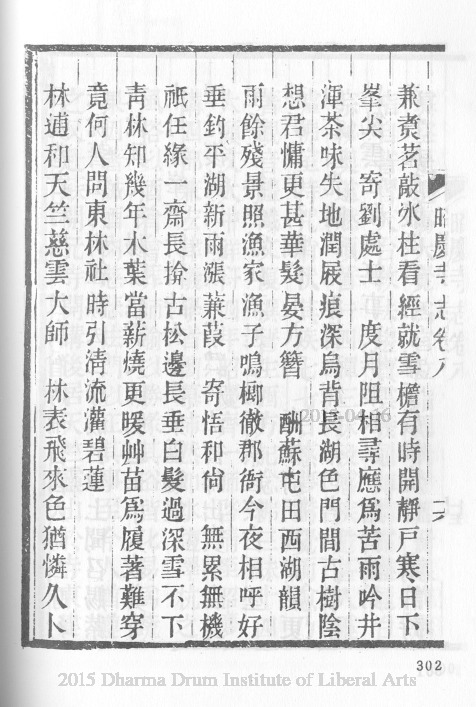 兼煑茗敲氷柱看經就雪檐有時開靜戸寒日下
峯尖　寄劉處士　度月阻相尋應爲苦雨吟井
渾茶味失地潤屐痕深烏背長湖色門間古樹陰
想君慵更甚華髮晏方簪　酬蘇屯田西湖韻
雨餘殘景照漁家漁子鳴榔徹郡衙今夜相呼好
垂釣平湖新雨漲蒹葭　寄悟和尙　無累無機
祇任緣一齋長揜古松邊長垂白髮過深雪不下
靑林知幾年木葉當薪燒更暖艸苗爲履著難穿
竟何人問東林社時引淸流灌碧蓮
林逋和天竺慈雲大師　林表飛來色猶憐久卜
昭慶寺志卷八
302
2015 Dharma Drum Institute of Liberal Arts